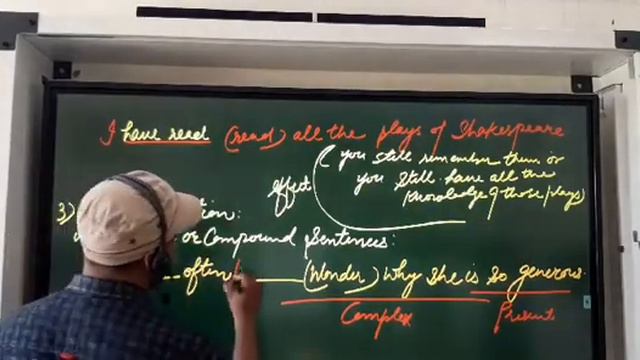 I have read (read) all the plays of Shakespeare
effect
(you still remember them or
you still have all the
knowledge of those plays)
3)
or Compound Sentences:
often (Wonder) why she is so generous.
Complex Present